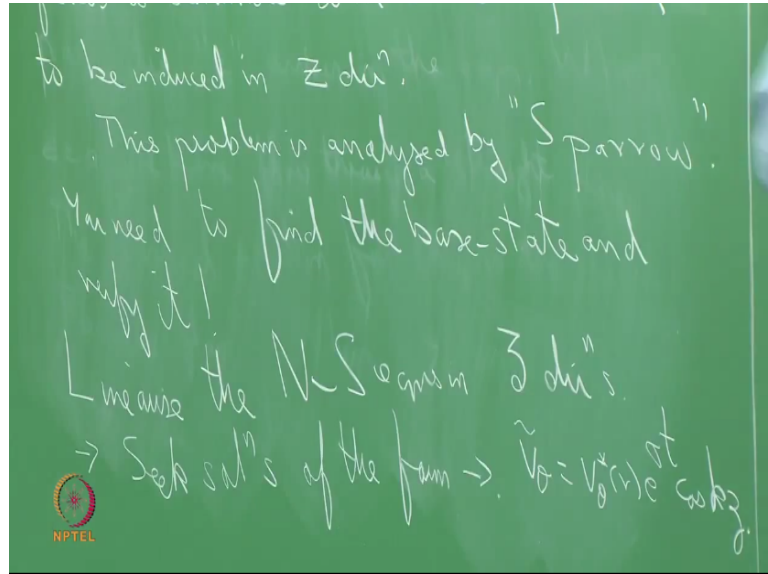 to be induced in Z dirⁿ.
This problem is analysed by "Sparrow".
You need to find the base-state and
verify it!
Linearise the N-S eqns in 3 dirⁿs.
→ Seek solⁿs of the form → ṽ_θ = v_θ*(r) e^{σt} cos kz.
NPTEL